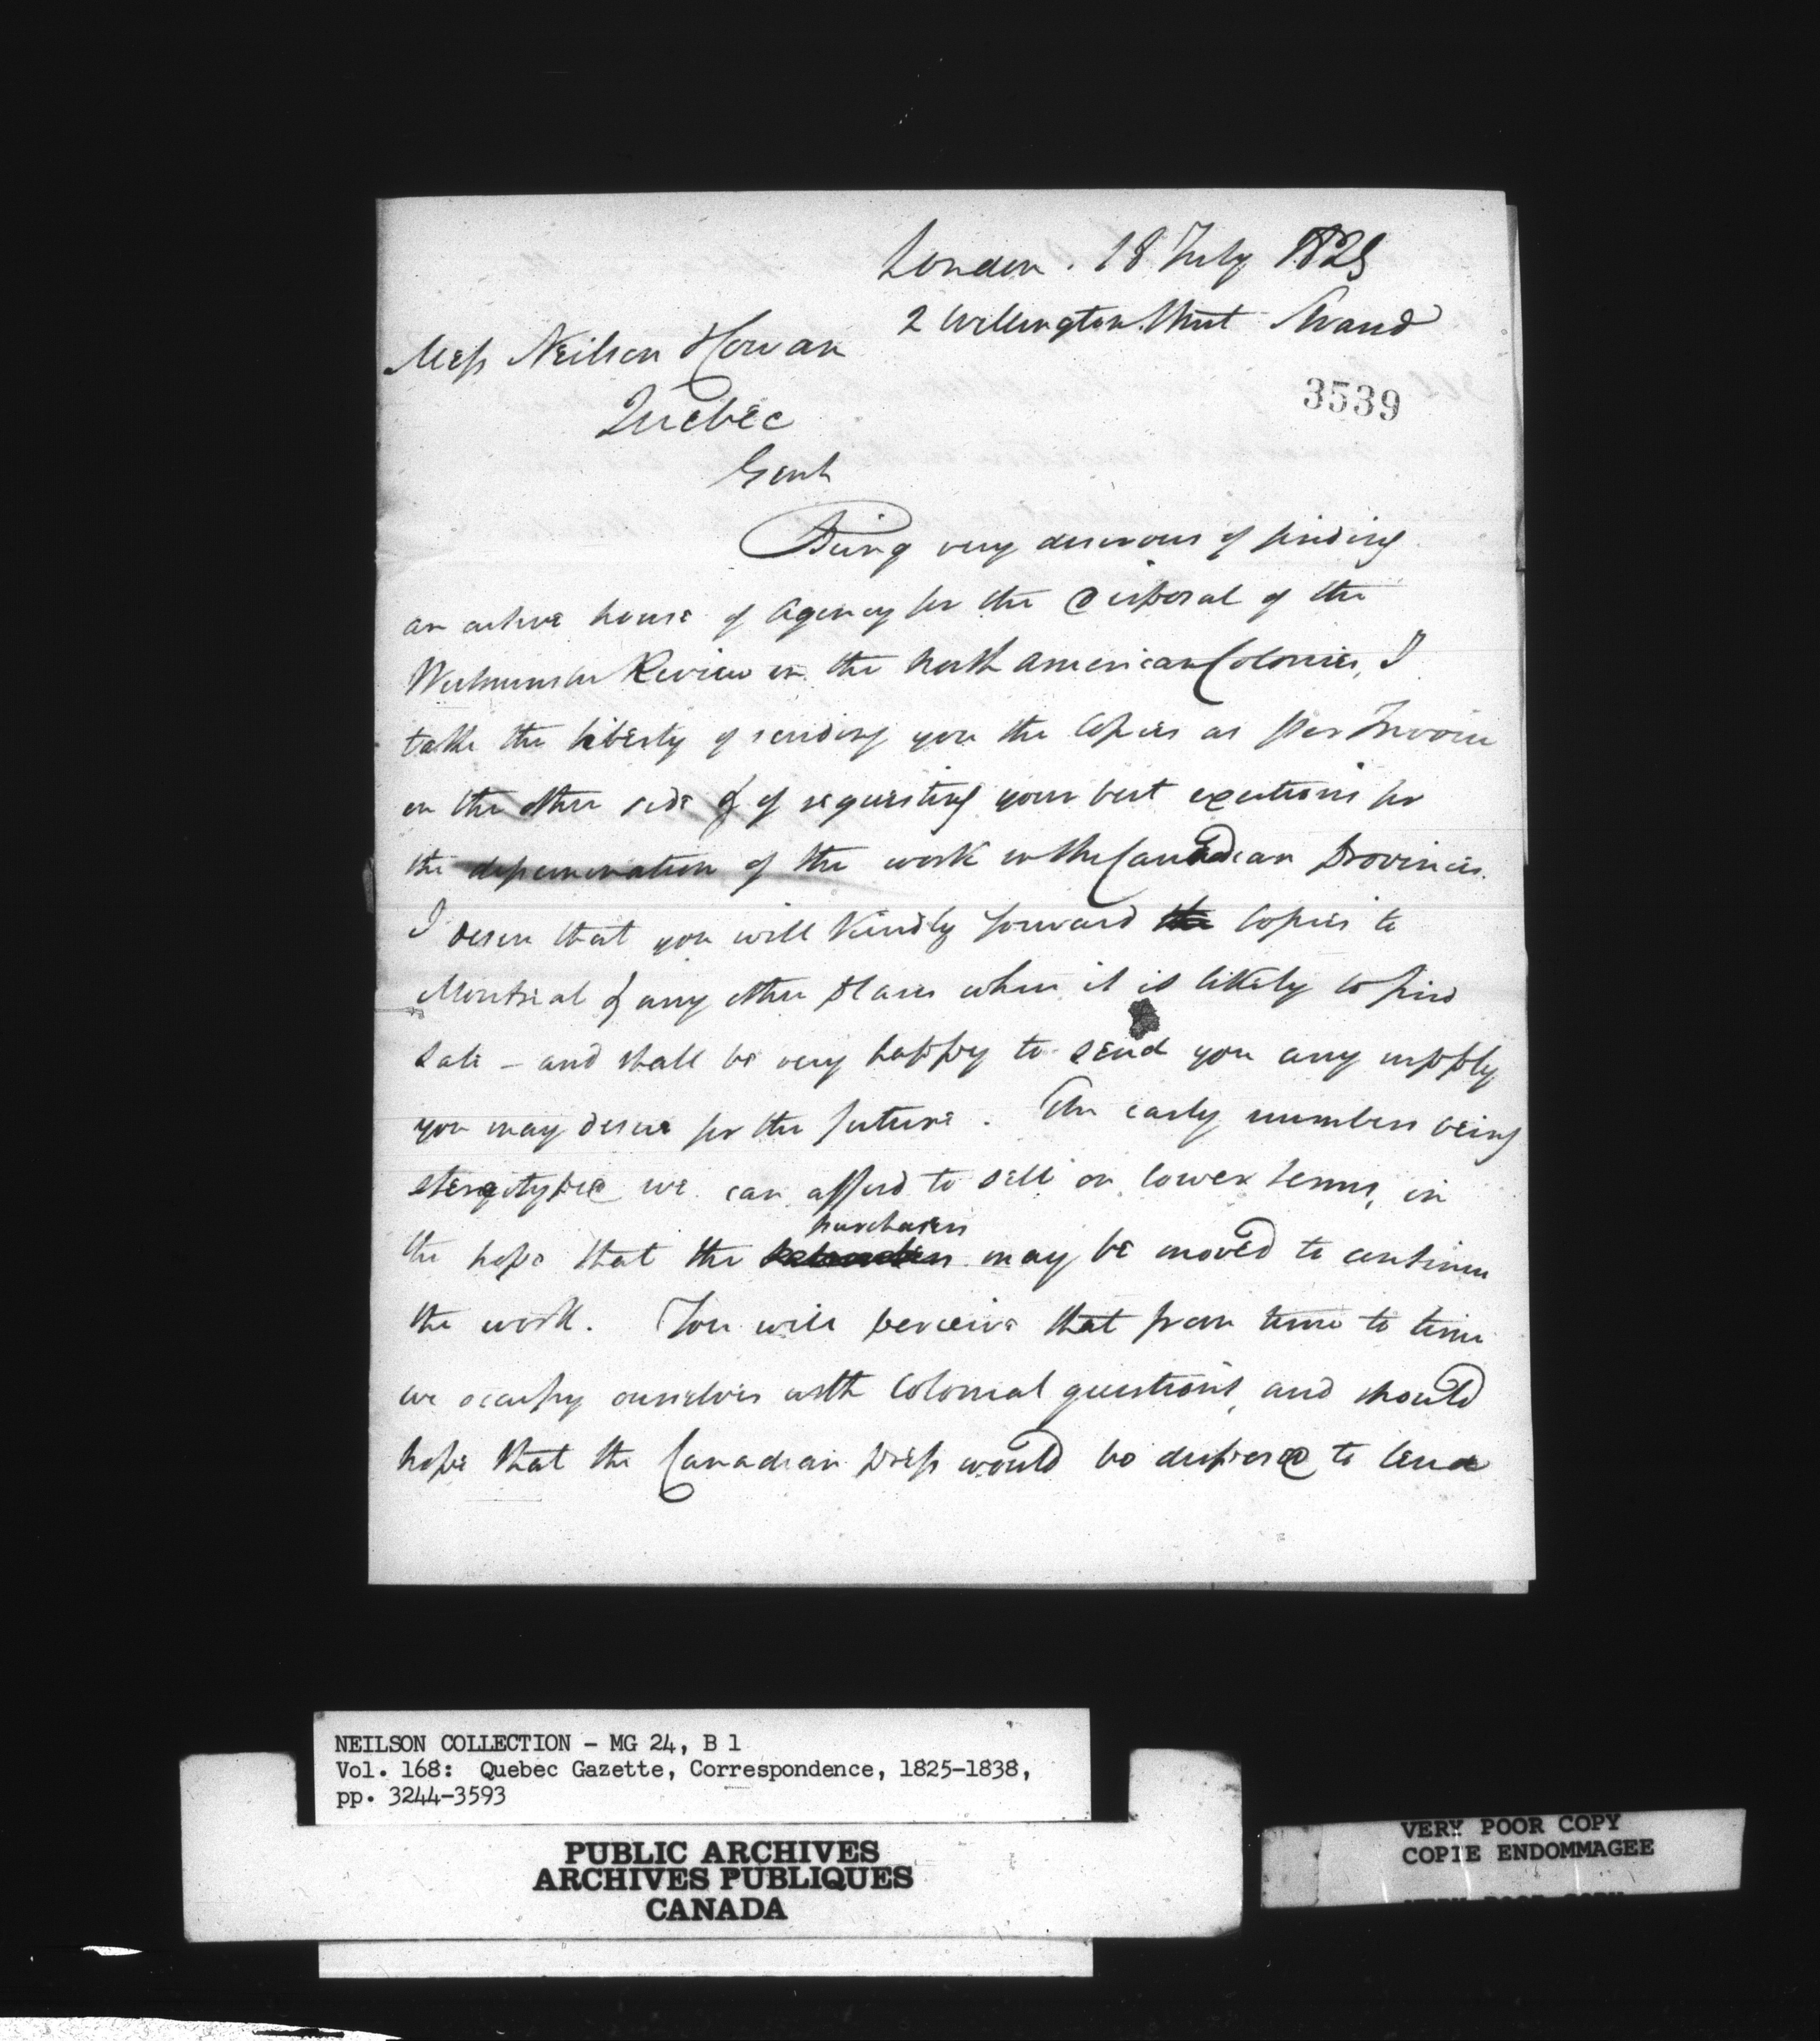 London. 18 July 1829
2 Wellington Street Strand
Mess Neilson Howan
3539
Quebec
Gent
Being very desirous of finding
an active house of Agency for the disposal of the
Westminster Review in the North American Colonies, I
take the liberty of sending you the Copies as per Invoice
on the other side & of requesting your best exertions for
the dissemination of the work in the Canadian Provinces.
I desire that you will kindly forward the Copies to
Montreal & any other places where it is likely to find
sale – and shall be very happy to send you any supply
you may desire for the future. The early numbers being
stereotyped we can afford to sell on lower terms, in
purchasers
the hope that the may be moved to continue
the work. You will perceive that from time to time
we occupy ourselves with Colonial questions, and should
hope that the Canadian press would be disposed to lend
NEILSON COLLECTION - MG 24, B 1
Vol. 168: Quebec Gazette, Correspondence, 1825-1838,
pp. 3244-3593
PUBLIC ARCHIVES
ARCHIVES PUBLIQUES
CANADA
VERY POOR COPY
COPIE ENDOMMAGEE